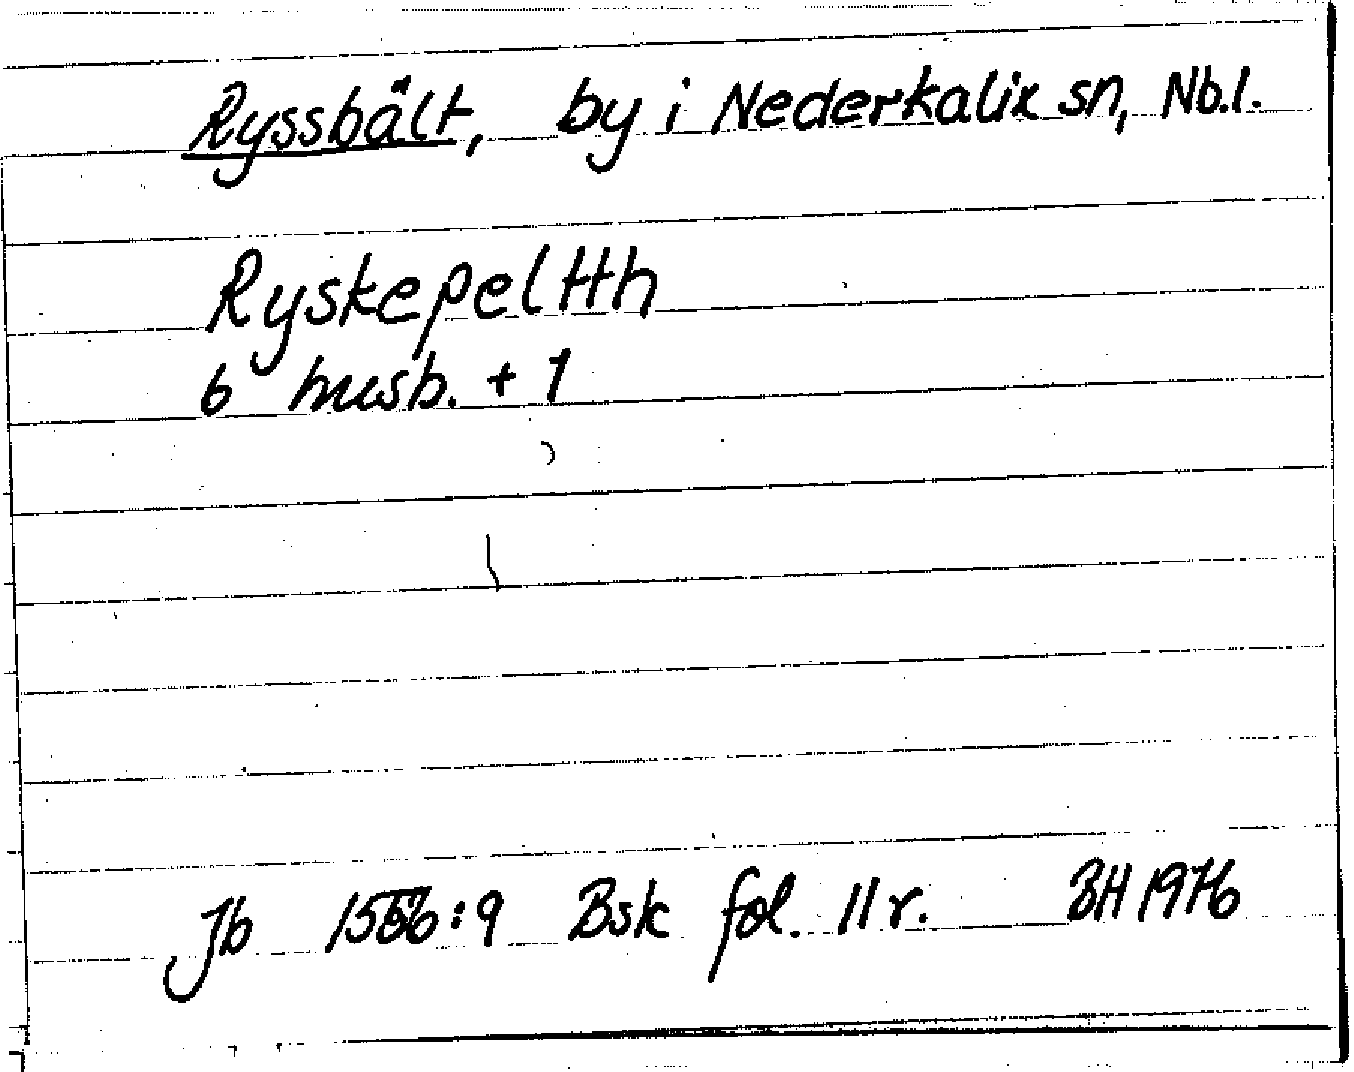 Ryssbält, by i Nederkalix sn, Nb.l.
Ryskepeltth
6 husb. + 1
Jb 1556:9 Bsk fol. 11r. BH 1976